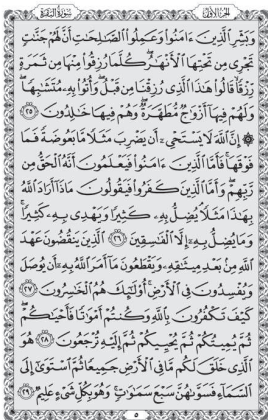 الجزء الأول سورة البقرة
وَبَشِّرِ ٱلَّذِينَ ءَامَنُوا۟ وَعَمِلُوا۟ ٱلصَّـٰلِحَـٰتِ أَنَّ لَهُمْ جَنَّـٰتٍ
تَجْرِى مِن تَحْتِهَا ٱلْأَنْهَـٰرُ ۖ كُلَّمَا رُزِقُوا۟ مِنْهَا مِن ثَمَرَةٍ
رِّزْقًا ۙ قَالُوا۟ هَـٰذَا ٱلَّذِى رُزِقْنَا مِن قَبْلُ ۖ وَأُتُوا۟ بِهِۦ مُتَشَـٰبِهًا ۖ
وَلَهُمْ فِيهَآ أَزْوَٰجٌ مُّطَهَّرَةٌ ۖ وَهُمْ فِيهَا خَـٰلِدُونَ ٢٥
۞ إِنَّ ٱللَّهَ لَا يَسْتَحْىِۦٓ أَن يَضْرِبَ مَثَلًا مَّا بَعُوضَةً فَمَا
فَوْقَهَا ۚ فَأَمَّا ٱلَّذِينَ ءَامَنُوا۟ فَيَعْلَمُونَ أَنَّهُ ٱلْحَقُّ مِن
رَّبِّهِمْ ۖ وَأَمَّا ٱلَّذِينَ كَفَرُوا۟ فَيَقُولُونَ مَاذَآ أَرَادَ ٱللَّهُ
بِهَـٰذَا مَثَلًا ۘ يُضِلُّ بِهِۦ كَثِيرًا وَيَهْدِى بِهِۦ كَثِيرًا ۚ
وَمَا يُضِلُّ بِهِۦٓ إِلَّا ٱلْفَـٰسِقِينَ ٢٦ ٱلَّذِينَ يَنقُضُونَ عَهْدَ
ٱللَّهِ مِنۢ بَعْدِ مِيثَـٰقِهِۦ وَيَقْطَعُونَ مَآ أَمَرَ ٱللَّهُ بِهِۦٓ أَن يُوصَلَ
وَيُفْسِدُونَ فِى ٱلْأَرْضِ ۚ أُو۟لَـٰٓئِكَ هُمُ ٱلْخَـٰسِرُونَ ٢٧
كَيْفَ تَكْفُرُونَ بِٱللَّهِ وَكُنتُمْ أَمْوَٰتًا فَأَحْيَـٰكُمْ ۖ
ثُمَّ يُمِيتُكُمْ ثُمَّ يُحْيِيكُمْ ثُمَّ إِلَيْهِ تُرْجَعُونَ ٢٨ هُوَ
ٱلَّذِى خَلَقَ لَكُم مَّا فِى ٱلْأَرْضِ جَمِيعًا ثُمَّ ٱسْتَوَىٰٓ إِلَى
ٱلسَّمَآءِ فَسَوَّىٰهُنَّ سَبْعَ سَمَـٰوَٰتٍ ۚ وَهُوَ بِكُلِّ شَىْءٍ عَلِيمٌ ٢٩
٥